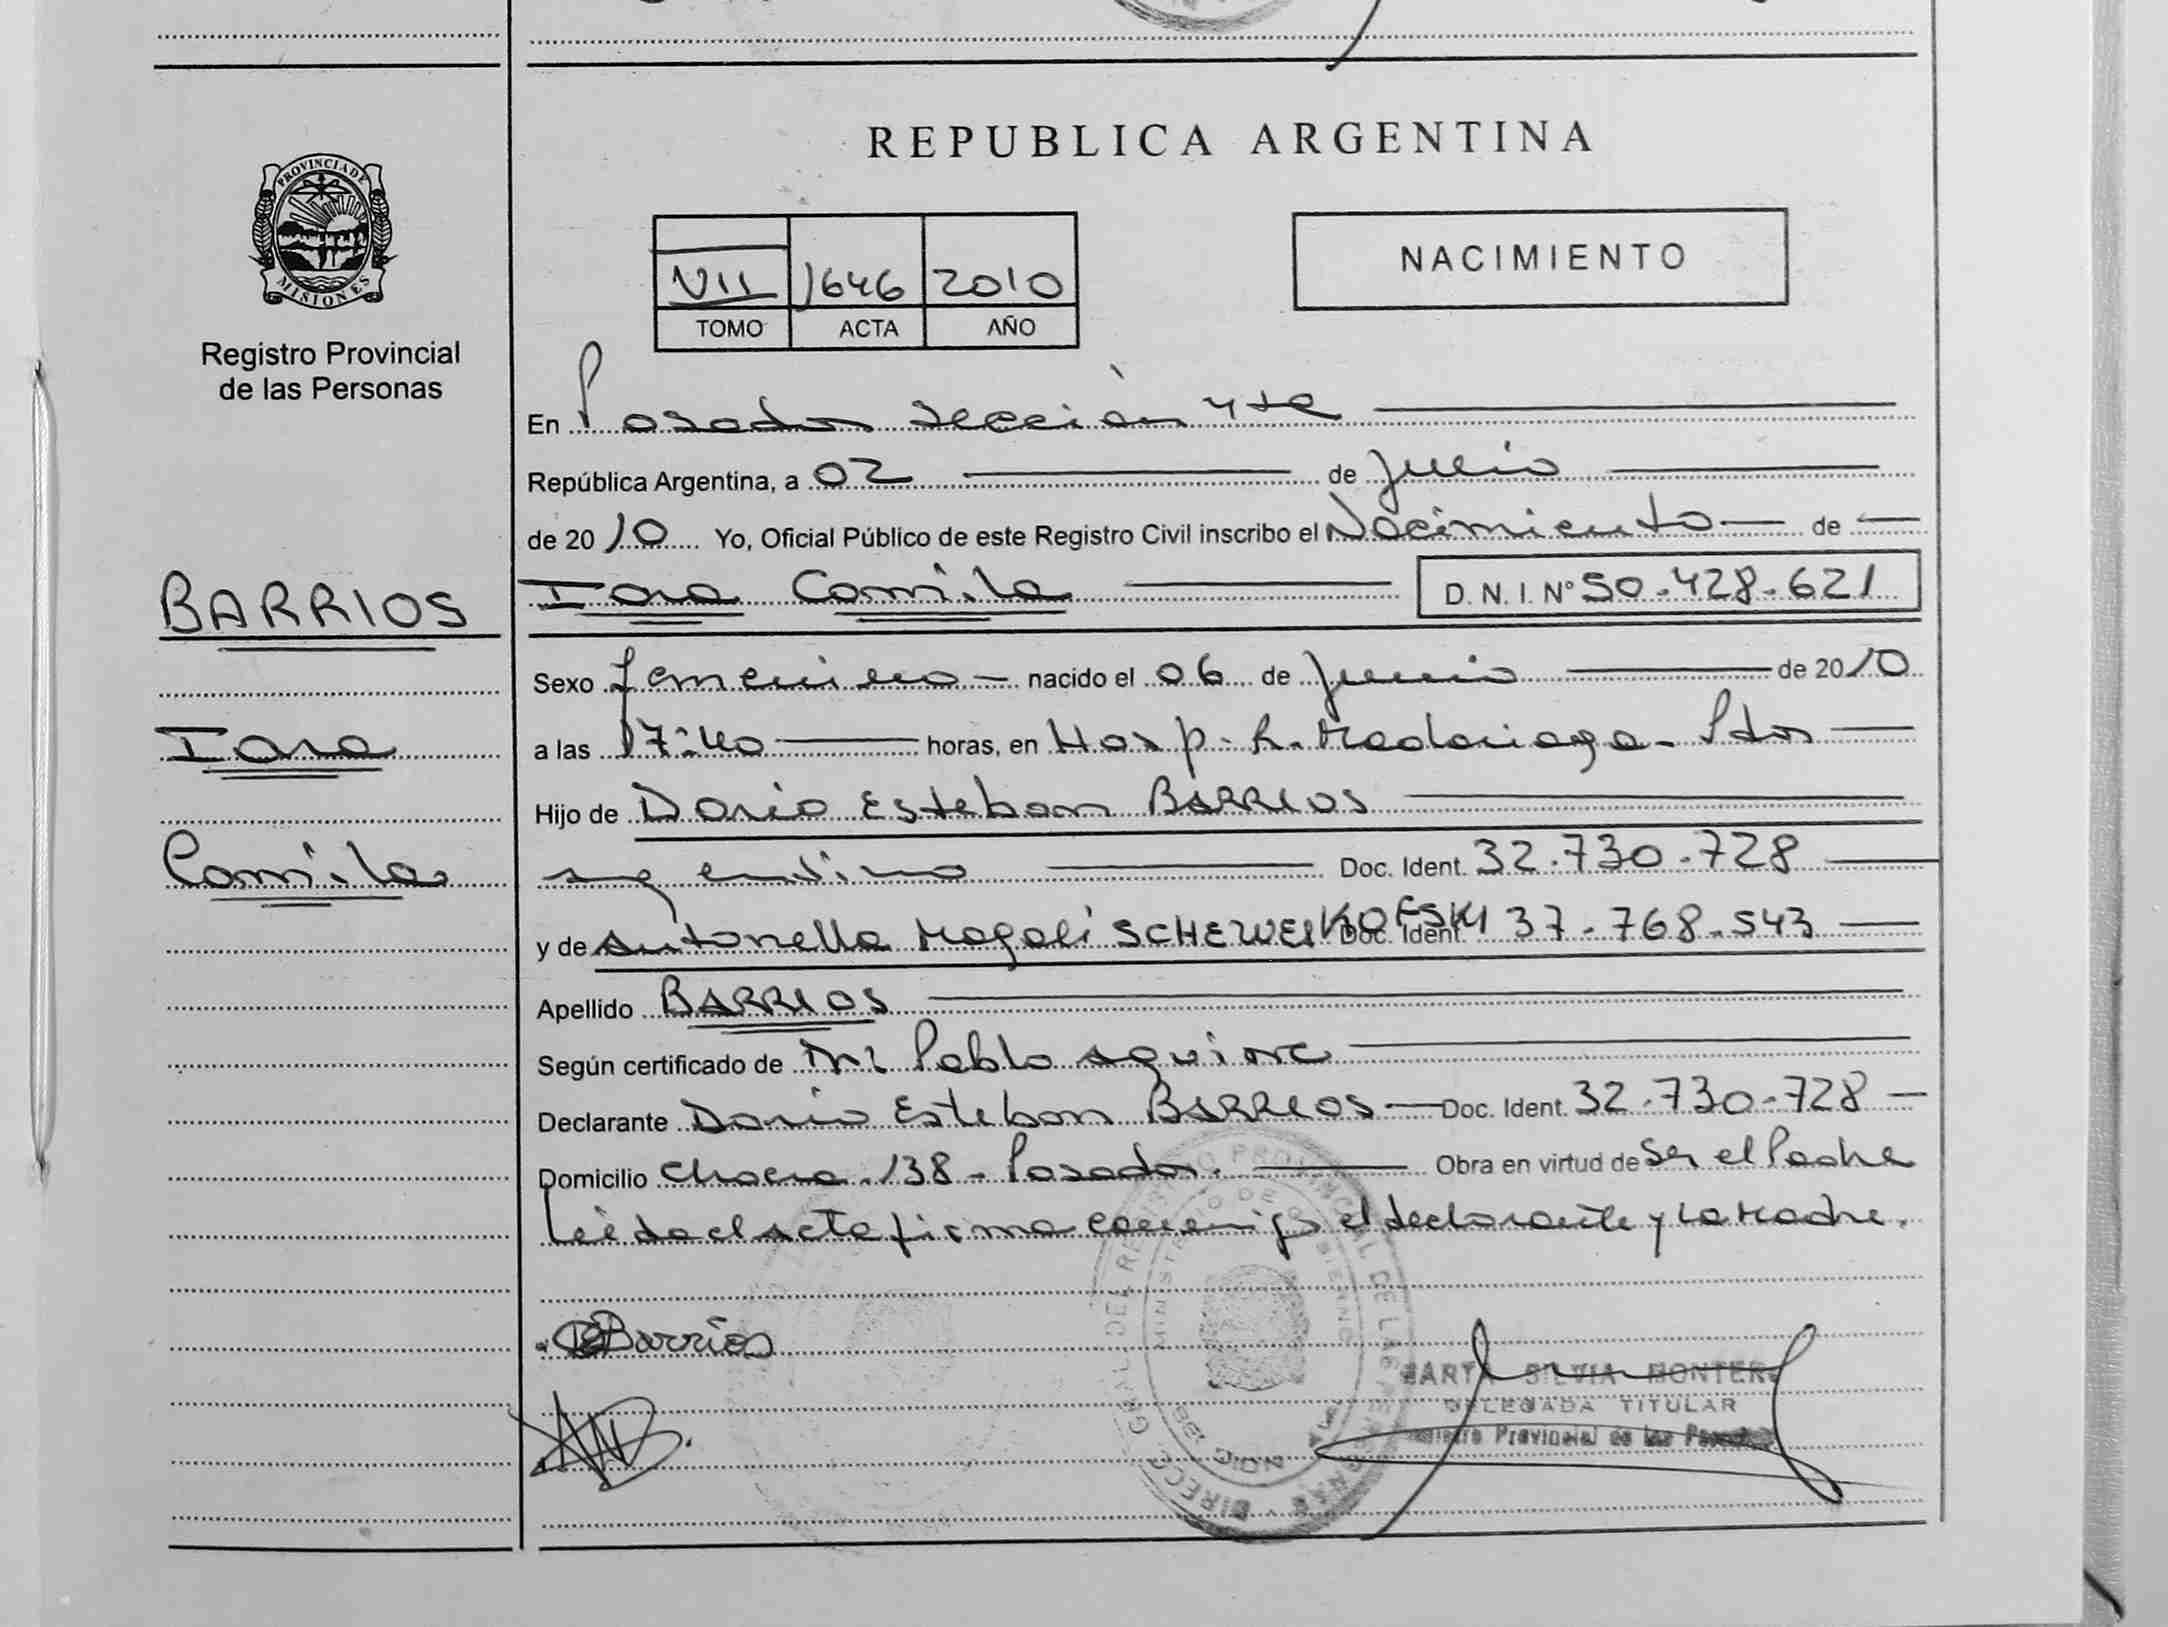 REPUBLICA ARGENTINA
PROVINCIA DE
MISIONES
Registro Provincial
de las Personas
NACIMIENTO
VII 1646 2010
TOMO ACTA AÑO
En Posadas sección 4ta
República Argentina, a 02 de Julio
de 2010 Yo, Oficial Público de este Registro Civil inscribo el Nacimiento de
BARRIOS
Iara
Camila
Iara Camila D. N. I. Nº 50.428.621
Sexo femenino nacido el 06 de Junio de 2010
a las 17:40 horas, en Hosp. R. Madariaga - Pdas
Hijo de Dario Esteban BARRIOS
argentino Doc. Ident. 32.730.728
y de Antonella Magali Doc. Ident. 37.768.543
Apellido BARRIOS
Según certificado de Pablo Aguirre
Declarante Dario Esteban BARRIOS Doc. Ident. 32.730.728
Domicilio 138 - Posadas. Obra en virtud de ser el Padre
Leida el acta firma conmigo el declarante y la Madre.
Barrios
SILVIA
DELEGADA TITULAR
Provincial de las